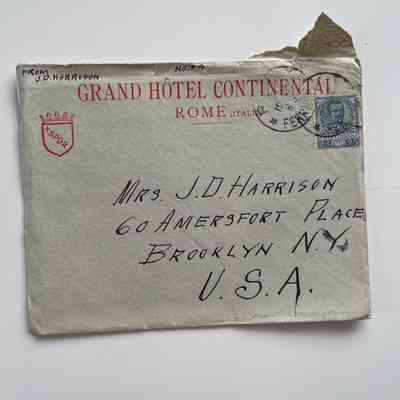 FROM
J.D. HARRISON
GRAND HÔTEL CONTINENTAL
ROME (ITALIE)
SPQR
MRS. J.D. HARRISON
60 AMERSFORT PLACE
BROOKLYN N.Y.
U.S.A.